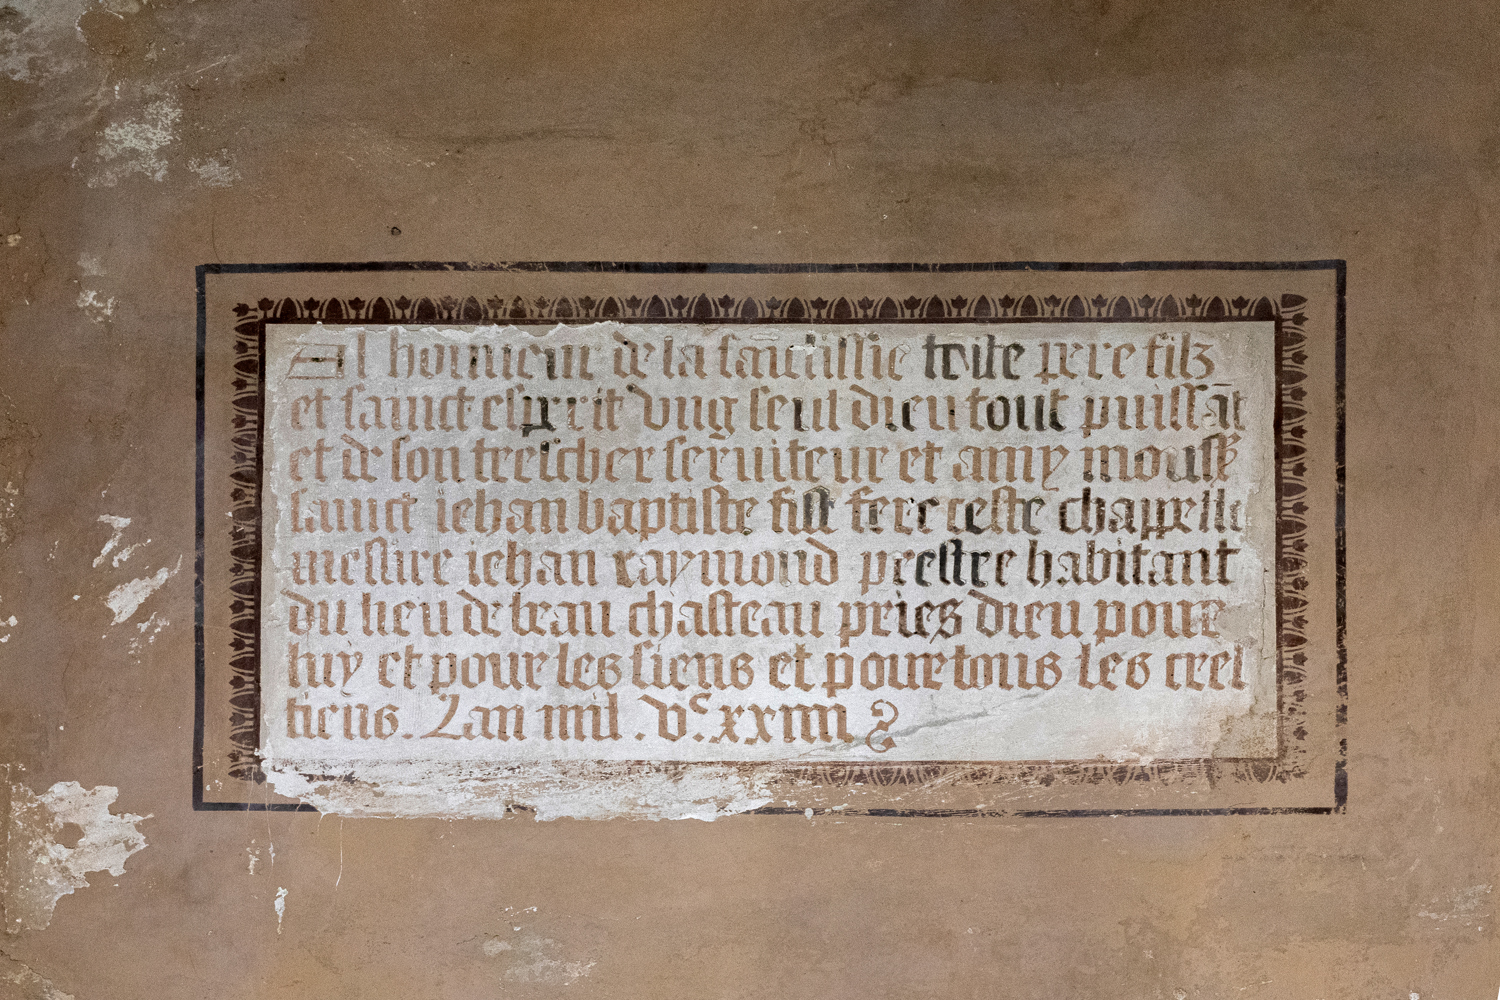 Al honneur de la sainctissie trite pere filz
et sainct esperit vng seul dieu tout puissāt
et de son treicher seruiteur et amy monsʳ
sainct iehan baptiste fist fere ceste chappelle
messire iehan raymond prestre habitant
du lieu de beau chasteau pries dieu pour
luy et pour les siens et pour tous les crel
tiens. Lan mil .vᶜ.xxiiii